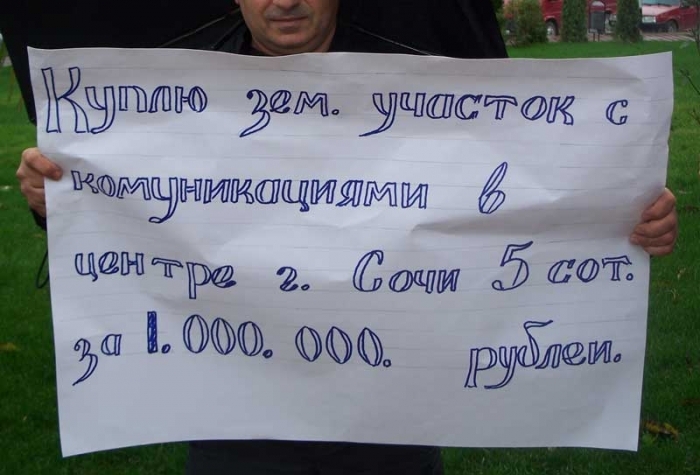 Куплю зем. участок с
комуникациями в
центре г. Сочи 5 сот.
за 1.000.000. рублей.